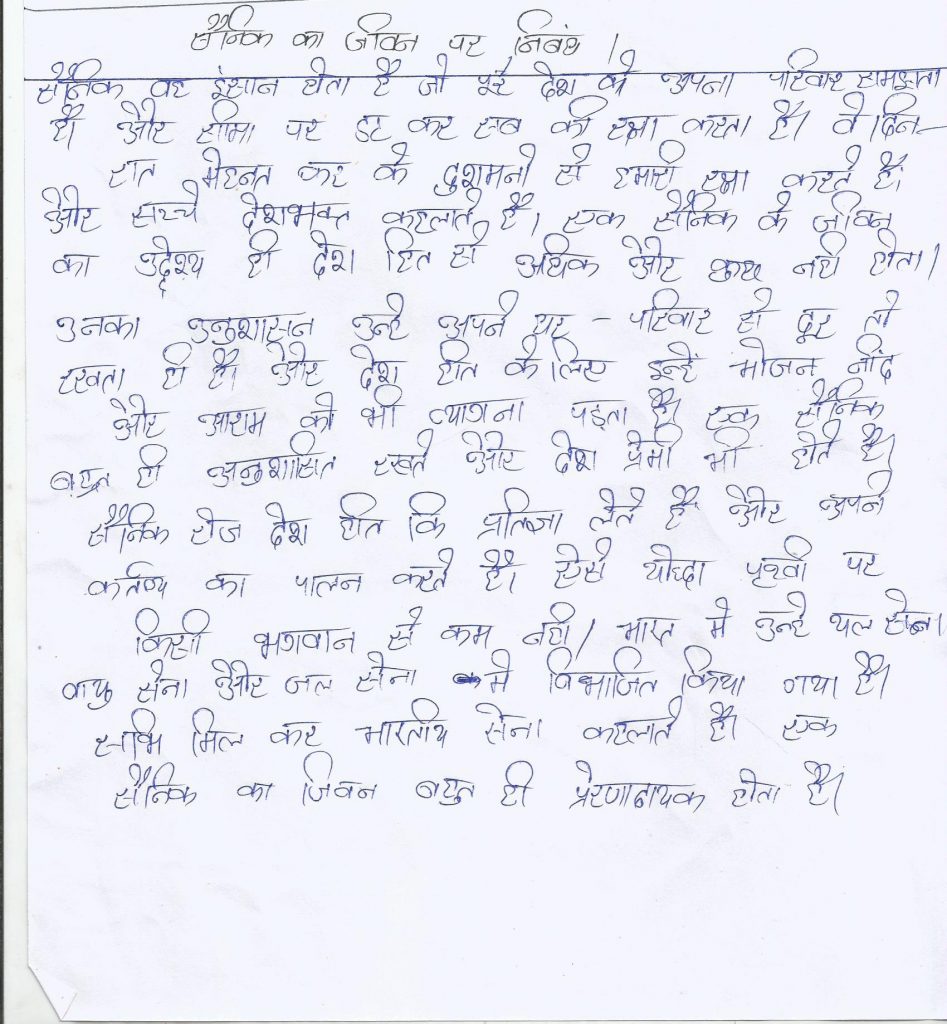 सैनिक का जीवन पर निबंध।
सैनिक वह इंसान होता है जो पूरे देश को अपना परिवार समझता
है। और सीमा पर डट कर सब की रक्षा करता है। वे दिन-
रात मेहनत कर के दुशमनो से हमारी रक्षा करते हैं।
और सच्चे देशभक्त कहलाते है। एक सैनिक के जीवन
का उद्देश्य ही देश हित से अधिक और कुछ नही होता।
उनका अनुशासन उन्हे अपने घर - परिवार से दूर तो
रखता ही है। और देश हीत के लिए इन्हें भोजन नींद
और आराम को भी त्यागना पड़ता है। एक सैनिक
बहुत ही अनुशासित रखते और देश प्रेमी भी होते है।
सैनिक रोज देश हीत कि प्रतिज्ञा लेते है और अपने
कर्तव्य का पालन करते है। ऐसे योद्धा पृथ्वी पर
किसी भगवान से कम नही। भारत मे उन्हे थल सेना
वायु सेना और जल सेना मे विभाजित किया गया है।
सभि मिल कर भारतीय सेना कहलाते है। एक
सैनिक का जिवन बहुत ही प्रेरणादायक होता है।